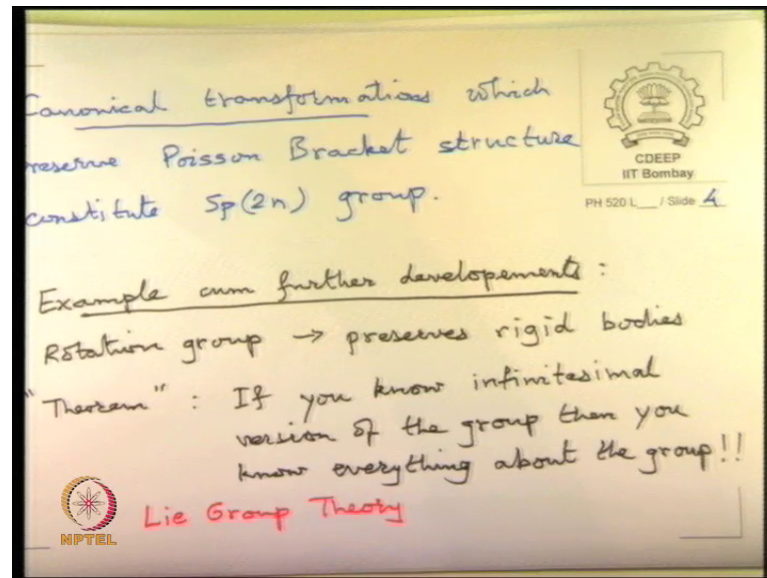 anonical transformations which
reserve Poisson Bracket structure
constitute Sp(2n) group.
CDEEP
IIT Bombay
PH 520 L___ / Slide 4
Example cum further developements :
Rotation group → preserves rigid bodies
"Theorem" : If you know infinitesimal
version of the group then you
know everything about the group!!
Lie Group Theory
NPTEL